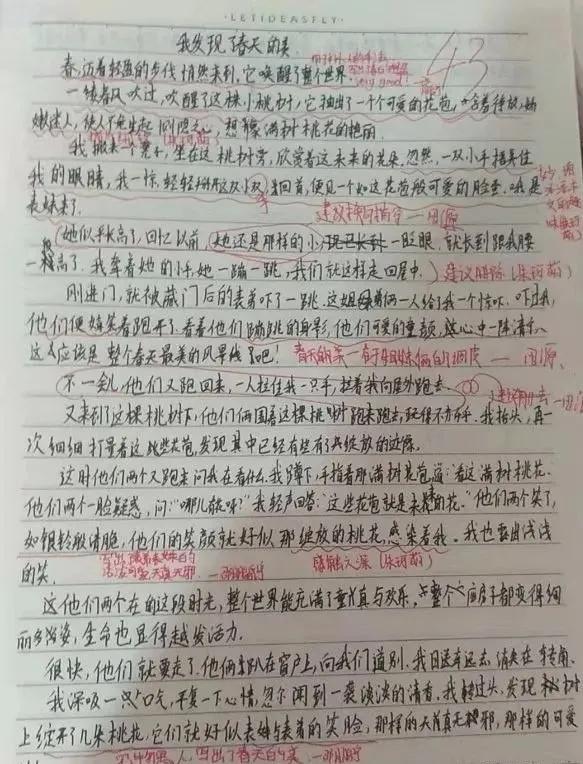 ·LETIDEASFLY·
我发现了春天的美
43
春,迈着轻盈的步伐悄然来到,它唤醒了整个世界。
very good
一缕春风吹过,吹醒了这棵小桃树,它抽出了一个个可爱的花苞,含苞待放,娇
嫩迷人,使人不免生起怜惜之心,想象满树桃花的艳丽。
我搬来一个凳子,坐在这桃树旁,欣赏着这未来的光景。忽然,一双小手捂住
我的眼睛,我一惊,轻轻掰开这双小手,回首,便见一个如这花苞般可爱的脸蛋。哦是
表妹来了。
建议换行描写
她似乎长高了,回忆以前,她还是那样的小,一眨眼,就长到跟我腰
一样高了。我牵着她的小手,她一蹦一跳,我们就这样走回屋中。
建议删除
刚进门,就被藏门后的表弟吓了一跳,这姐弟俩一人给了我一个惊吓。吓过我,
他们便嬉笑着跑开了,看着他们蹦跳的身影,他们可爱的童颜,我心中一阵清乐。
这应该是整个春天最美的风景线了吧!
春天的美
不一会儿,他们又跑回来,一人拉住我一只手,拉着我向屋外跑去。
又来到了这棵桃树下,他们俩围着这棵桃树跑来跑去,玩得不亦乐乎。我抬头,再
一次细细打量着这些花苞,发现其中已经有些有了点绽放的迹象。
这时他们两个又跑来问我在看什么,我蹲下,手指着那满树花苞,道:“看这满树桃花。”
他们两个一脸疑惑,问:“哪儿有呀?”我轻声回答:“这些花苞就是未来的花。”他们两个笑了,
如银铃般清脆,他们的笑颜就好似那绽放的桃花,感染着我。我也露出浅浅
的笑。
这他们两个在的这段时光,整个世界能充满了童真与欢乐,整个房子都变得绚
丽多姿,生命也显得越发活力。
很快,他们就要走了,他俩趴在窗户上,向我们道别,我目送车远去,消失在转角。
我深吸一口气,平复一下心情,忽闻到一袭淡淡的清香,我转过头,发现桃树
上绽开了几朵桃花,它们就好似表妹与表弟的笑脸,那样的天真无邪,那样的可爱